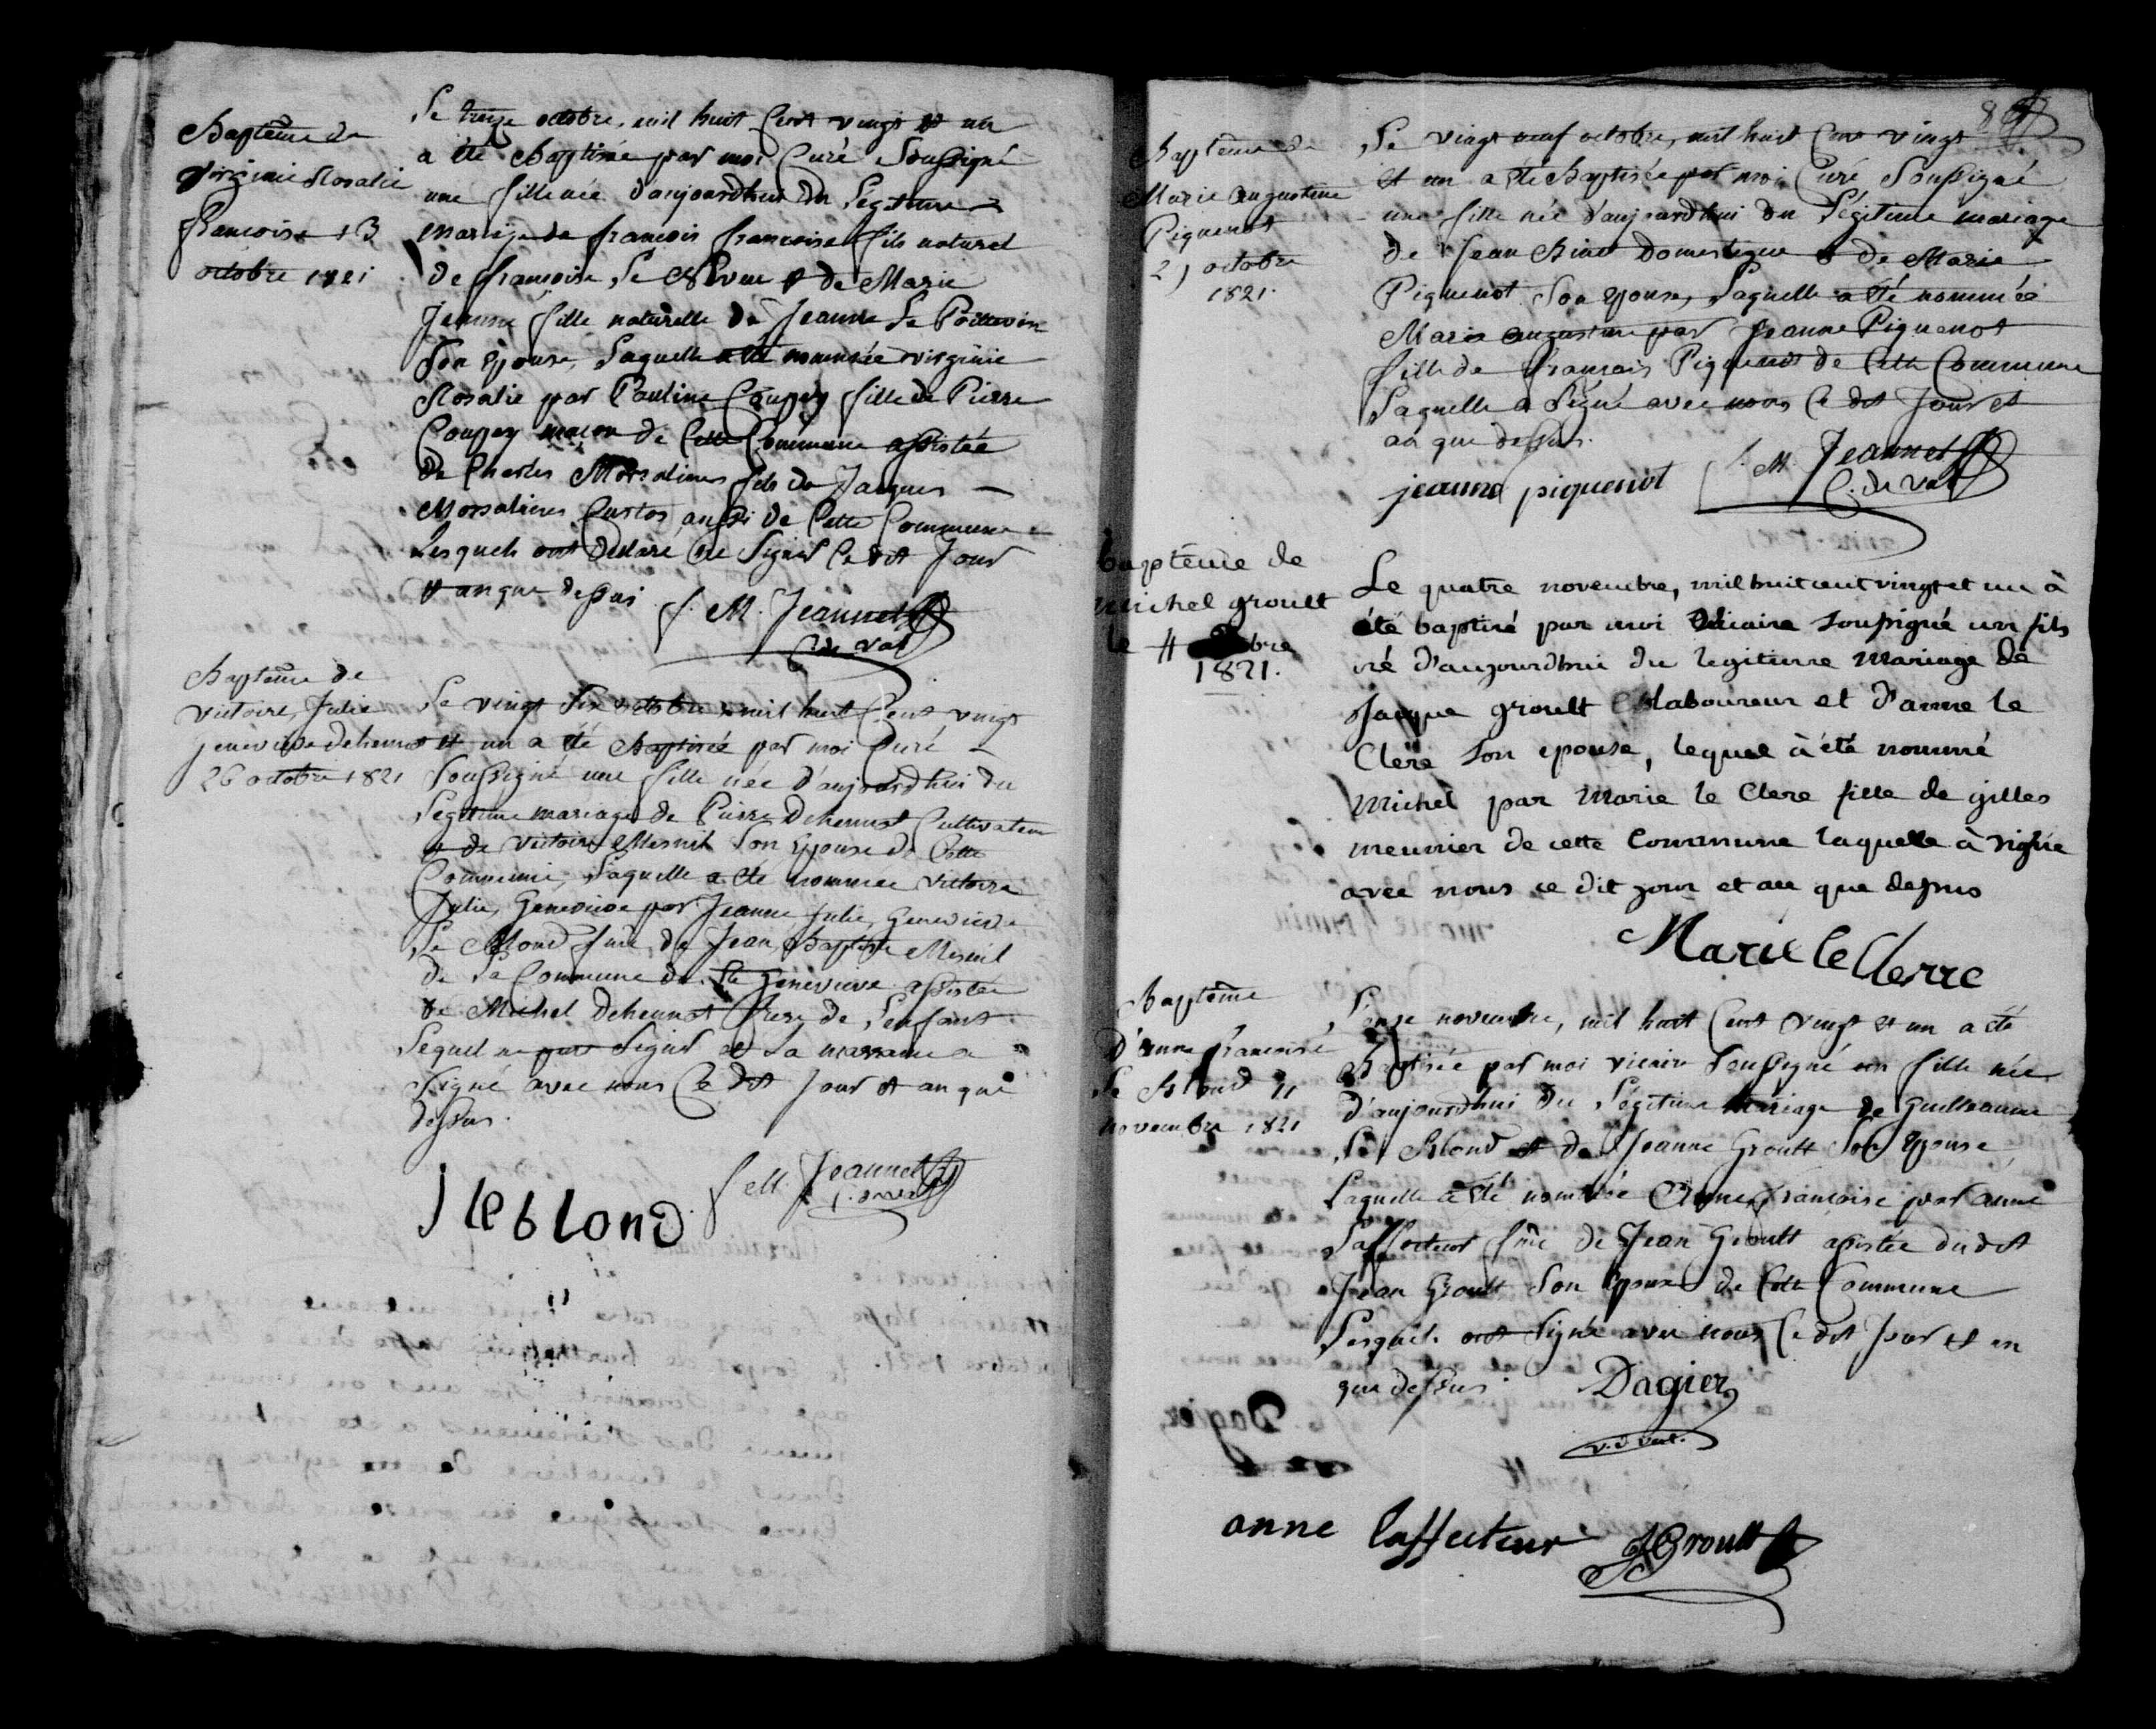 Baptême de
Virginie Rosalie
Francoise 13
octobre 1821
Le treize octobre, mil huit Cent vingt et un
a été Baptisée par moi Curé Soussigné
une fille née d'aujourdhui du Légitime
mariage de francois francoise fils naturel
de francoise Le et de Marie
Jeanne fille naturelle de Jeanne Le Poittevin
son épouse, Laquelle a été nommée virginie
Rosalie par Pauline Couppey fille de Pierre
Couppey macon de Cette Commune assistée
de Charles Morsalines fils de Jacques
Morsalines Custos aussi de Cette Commune
Lesquels ont déclaré ne Signer Ce dit Jour
et an que dessus
f. M. Jeannet
C. du vat
Baptême de
victoire, Julie
genevieve dehennot
26 octobre 1821
Le vingt Six octobre mil huit Cent vingt
et un a été Baptisée par moi Curé
Soussigné une fille née d'aujourdhui du
Légitime mariage de Pierre Dehennot Cultivateur
et de victoire Mesnil Son épouse de Cette
Commune, Laquelle a été nommée victoire
Julie, Genevieve par Jeanne Julie, Genevieve
Le Blond fme de Jean Baptiste Mesnil
de La Commune de Ste Genevieve assistée
de Michel Dehennot frere de L'enfant
Lequel ne Signer et La marraine a
Signé avec nous Ce dit Jour et an que
dessus.
J le blond
f. M. Jeannet
8
Baptême de
Marie augustine
Piquenot
29 octobre
1821.
Le vingt neuf octobre, mil huit Cent vingt
et un a été Baptisée par moi Curé Soussigné
une fille née d'aujourdhui du Légitime mariage
de Jean Domestique et de Marie
Piquenot Son épouse, Laquelle a été nommée
Marie augustine par Jeanne Piquenot
fille de francois Piquenot de Cette Commune
Laquelle a Signé avec nous Ce dit Jour et
an que dessus.
jeanne piquenot
f. M. Jeannet
C. du vat
baptême de
michel groult
le 4 bre
1821.
Le quatre novembre, mil huit cent vingt et un à
été baptisé par moi vicaire soussigné un fils
né d'aujourdhui du legitime mariage de
Jacque groult laboureur et d'anne le
Clerc son epouse, lequel à été nommé
michel par marie le Clerc fille de gilles
meunier de cette Commune laquelle à signée
avec nous ce dit jour et an que dessus
Marie le Clerrc
Baptême
D'anne francoise
Le Blond 11
novembre 1821
L'onze novembre, mil huit Cent vingt et un a été
Baptisée par moi vicaire Soussigné un fille née
d'aujourdhui du Légitime Mariage de Guilleaume
Le Blond et de Jeanne Groult Son épouse,
Laquelle a été nommée Anne francoise par anne
Laffecteur fme de Jean Groult assistée dudit
Jean Groult Son épous de Cette Commune
Lesquels ont Signé avec nous Ce dit Jour et an
que dessus.
Dagier
v. d vat.
anne laffecteur
J Groult